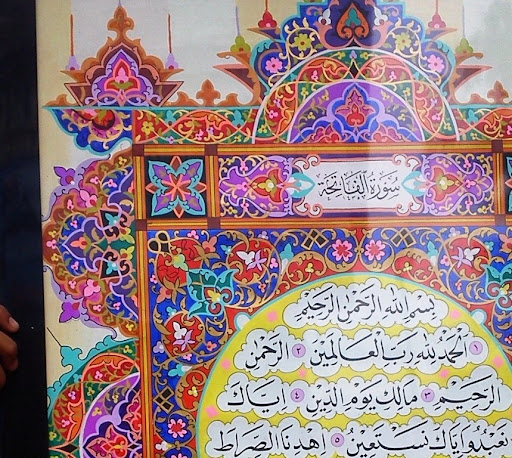 سورة الفاتحة
بسم الله الرحمن الرحيم
١ الحمد لله رب العالمين ٢ الرحمن
الرحيم ٣ مالك يوم الدين ٤ اياك
نعبد واياك نستعين ٥ اهدنا الصراط